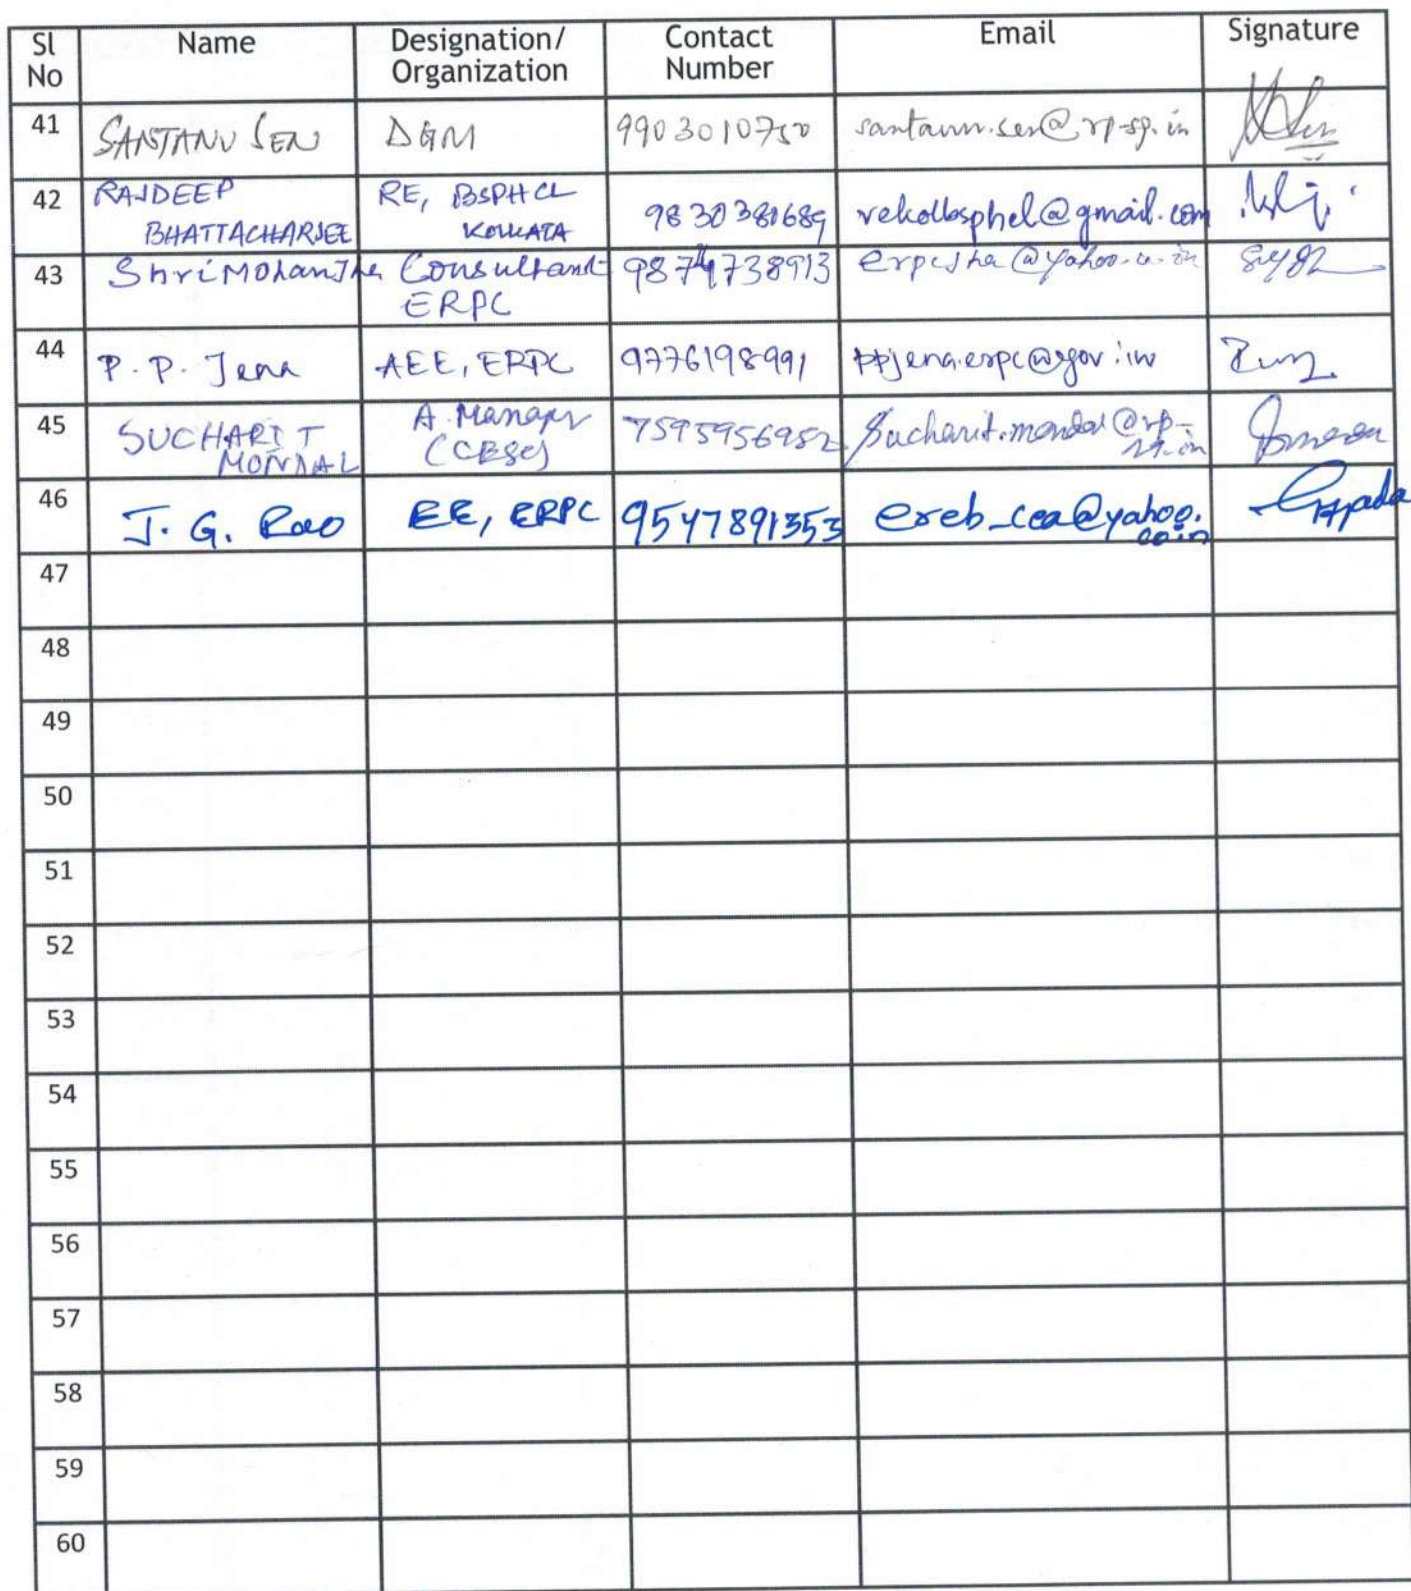 Sl No Name Designation/ Organization Contact Number Email Signature
41 SANTANU SEN DGM 9903010750 santanu.sen@rp-sg.in
42 RAJDEEP BHATTACHARJEE RE, BSPHCL KOLKATA 9830380689 rekolbsphcl@gmail.com
43 Shri Mohan Jha Consultant ERPC 9874738913
44 P. P. Jena AEE, ERPC 9776198991 ppjena.erpc@gov.in
45 SUCHARIT MONDAL A. Manager (CESC) 7595956952
46 J. G. Rao EE, ERPC 9547891353 ereb_cea@yahoo.co.in
47
48
49
50
51
52
53
54
55
56
57
58
59
60